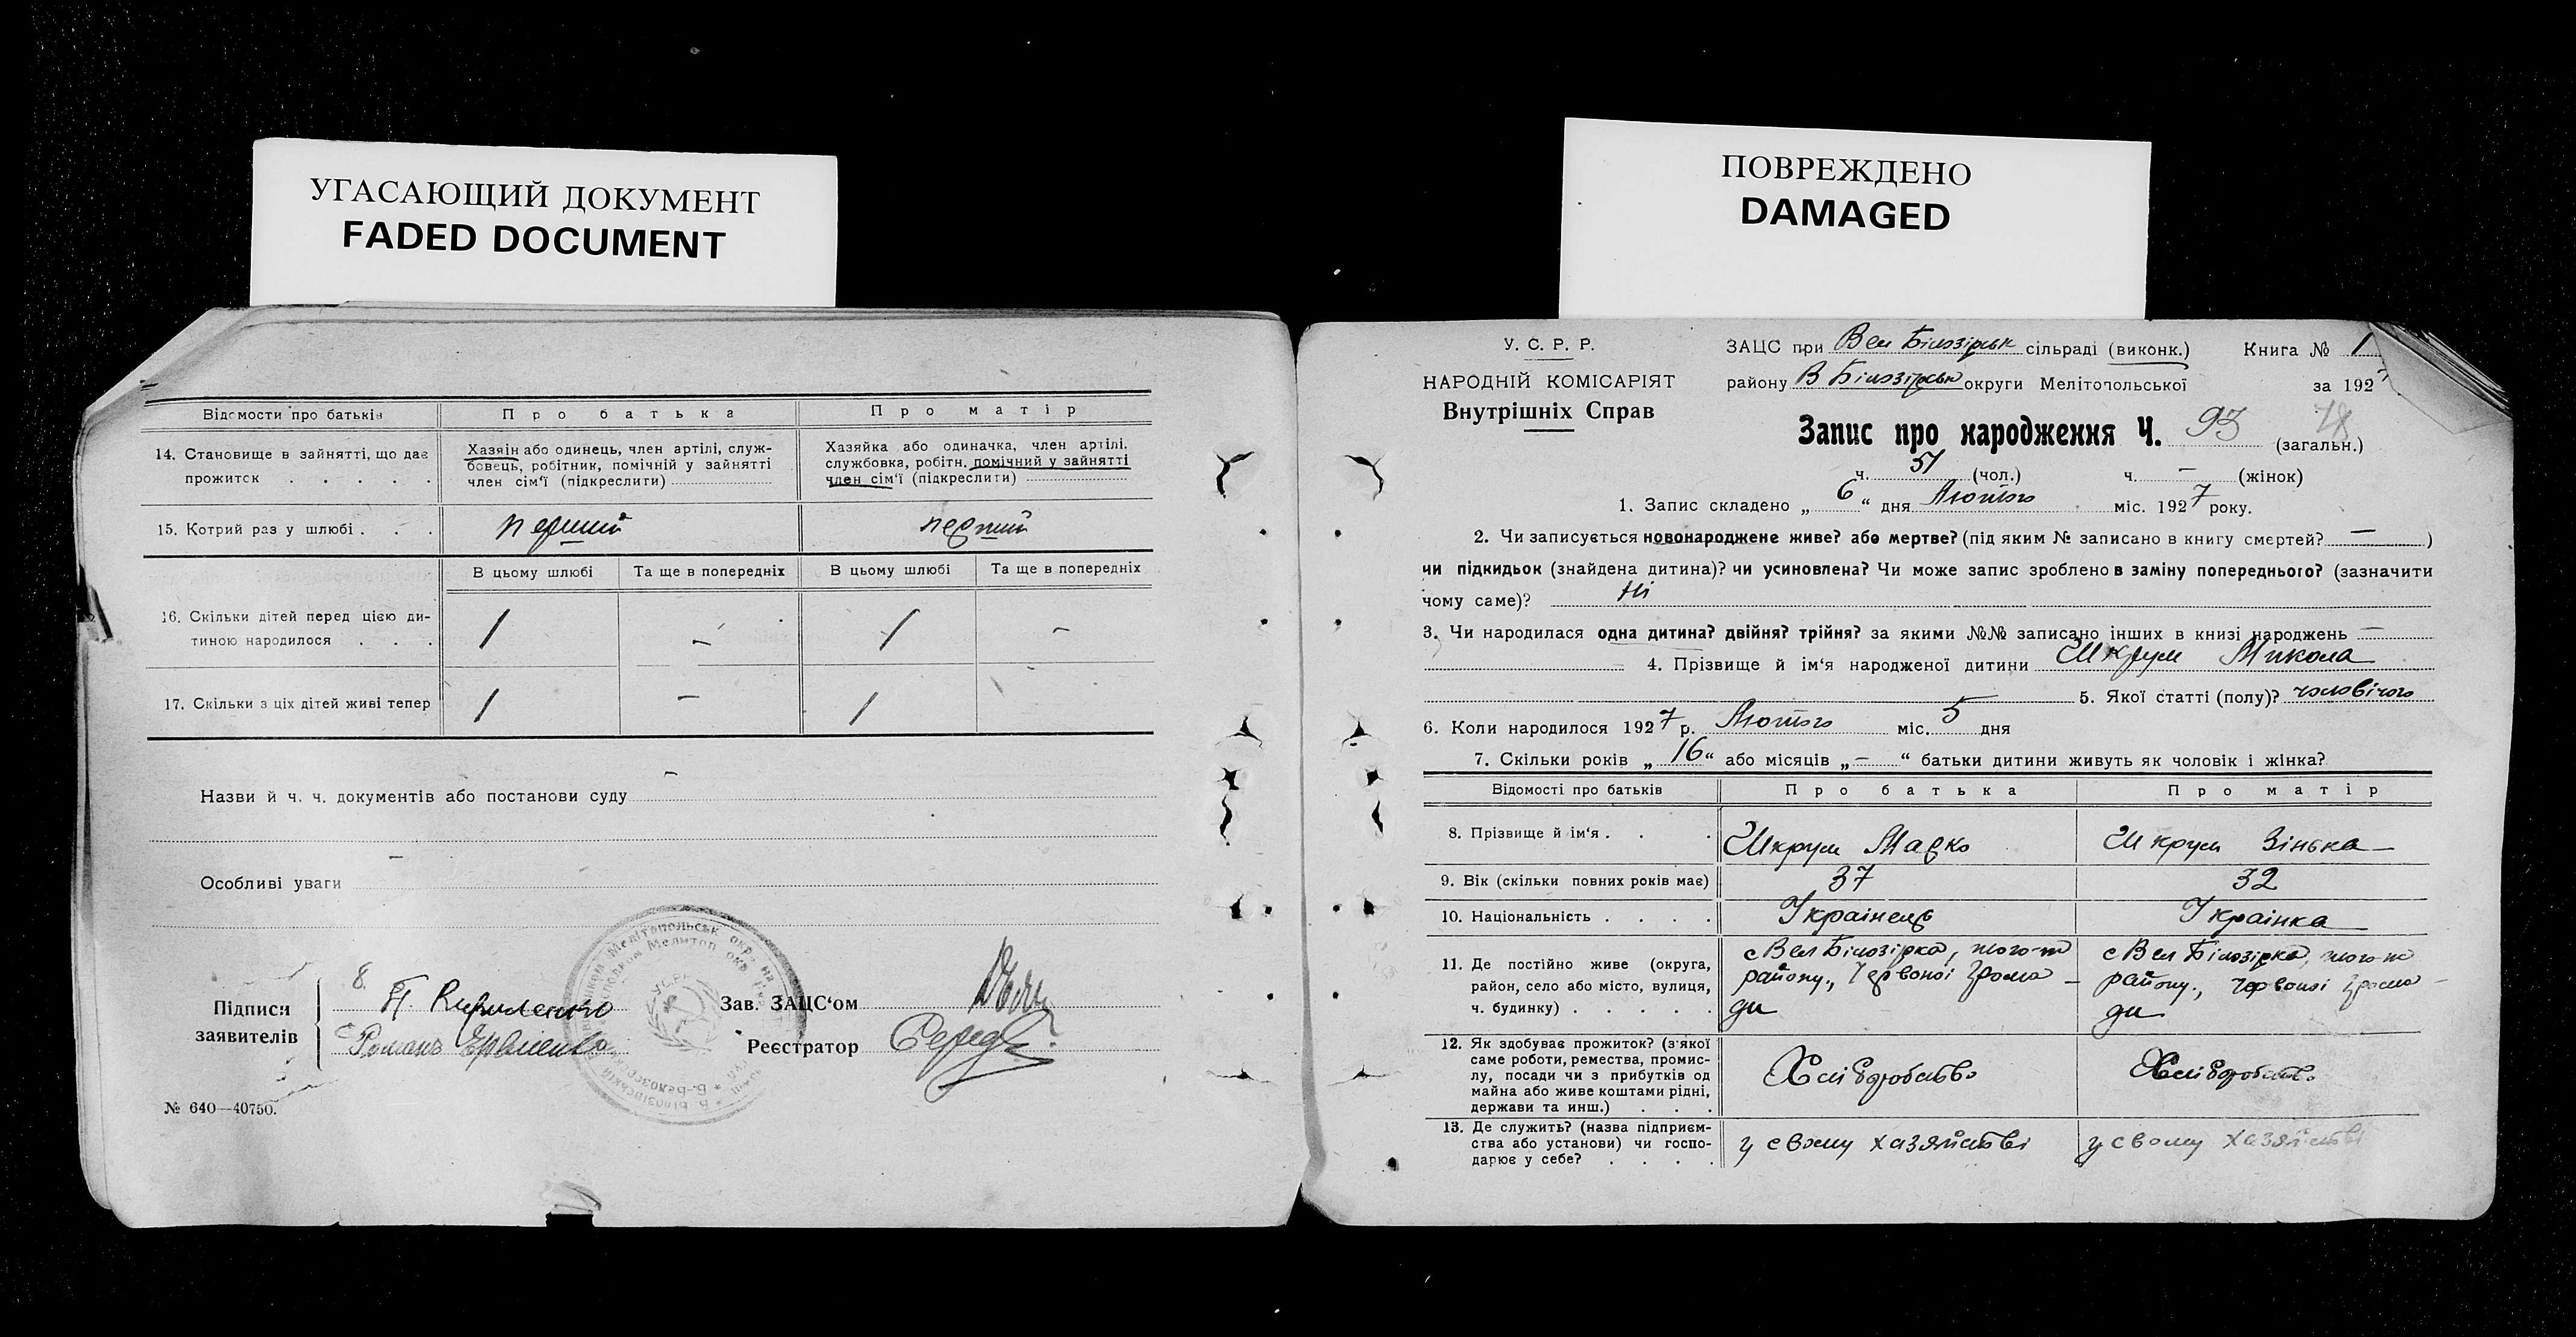 УГАСАЮЩИЙ ДОКУМЕНТ
FADED DOCUMENT
Відомости про батьків
Про батька
Про матір
14. Становище в зайнятті, що дає прожиток . . . . .
Хазяін або одинець, член артілі, служ-
бовець, робітник, помічній у зайнятті
член сім'ї (підкреслити)
Хазяйка або одиначка, член артілі,
службовка, робітн. помічний у зайнятті
член сім'ї (підкреслити)
15. Котрий раз у шлюбі . . .
перший
перший
В цьому шлюбі
Та ще в попередніх
В цьому шлюбі
Та ще в попередніх
16. Скільки дітей перед цією ди-
тиною народилося . . .
1
—
1
—
17. Скільки з ціх дітей живі тепер
1
—
1
Назви й ч. ч. документів або постанови суду —
Особливі уваги —
Підписи
заявителів
П. Кириленко
Романъ
Зав. ЗАЦС'ом
Реєстратор
№ 640—40750.
ПОВРЕЖДЕНО
DAMAGED
У. С. Р. Р.
НАРОДНІЙ КОМІСАРІЯТ
Внутрішніх Справ
ЗАЦС при Вел Білозірськ сільраді (виконк.) Книга № 1
району В Білозірськ округи Мелітопольської за 1927
Запис про народження Ч. 93 (загальн.)
78
ч. 51 (чол.) ч. — (жінок)
1. Запис складено „ 6 “ дня Лютого міс. 1927 року.
2. Чи записується новонароджене живе? або мертве? (під яким № записано в книгу смертей? — )
чи підкидьок (знайдена дитина)? чи усиновлена? Чи може запис зроблено в заміну попереднього? (зазначити
чому саме)? Ні
3. Чи народилася одна дитина? двійня? трійня? за якими №№ записано інших в книзі народжень —
— 4. Прізвище й ім'я народженої дитини Шкрум Микола
5. Якої статті (полу)? чоловічого
6. Коли народилося 1927 р. Лютого міс. 5 дня
7. Скільки років „ 16 “ або місяців „ — “ батьки дитини живуть як чоловік і жінка?
Відомості про батьків
Про батька
Про матір
8. Прізвище й ім'я . . .
Шкрум Марко
Шкрум Зінька —
9. Вік (скільки повних років має)
37
32
10. Національність . . . .
Українець
Українка
11. Де постійно живе (округа,
район, село або місто, вулиця,
ч. будинку) . . . . .
с Вел Білозірка, того-ж
району, Червоної Грома-
ди
с Вел Білозірка, того-ж
району, Червоної Грома-
ди
12. Як здобуває прожиток? (з'якої
саме роботи, ремества, промис-
лу, посади чи з прибутків од
майна або живе коштами рідні,
держави та инш.) . . .
Хліборобство
Хліборобств.
13. Де служить? (назва підприєм-
ства або установи) чи госпо-
дарює у себе? . . . .
у свому хазяйстві
у свому хазяйстві